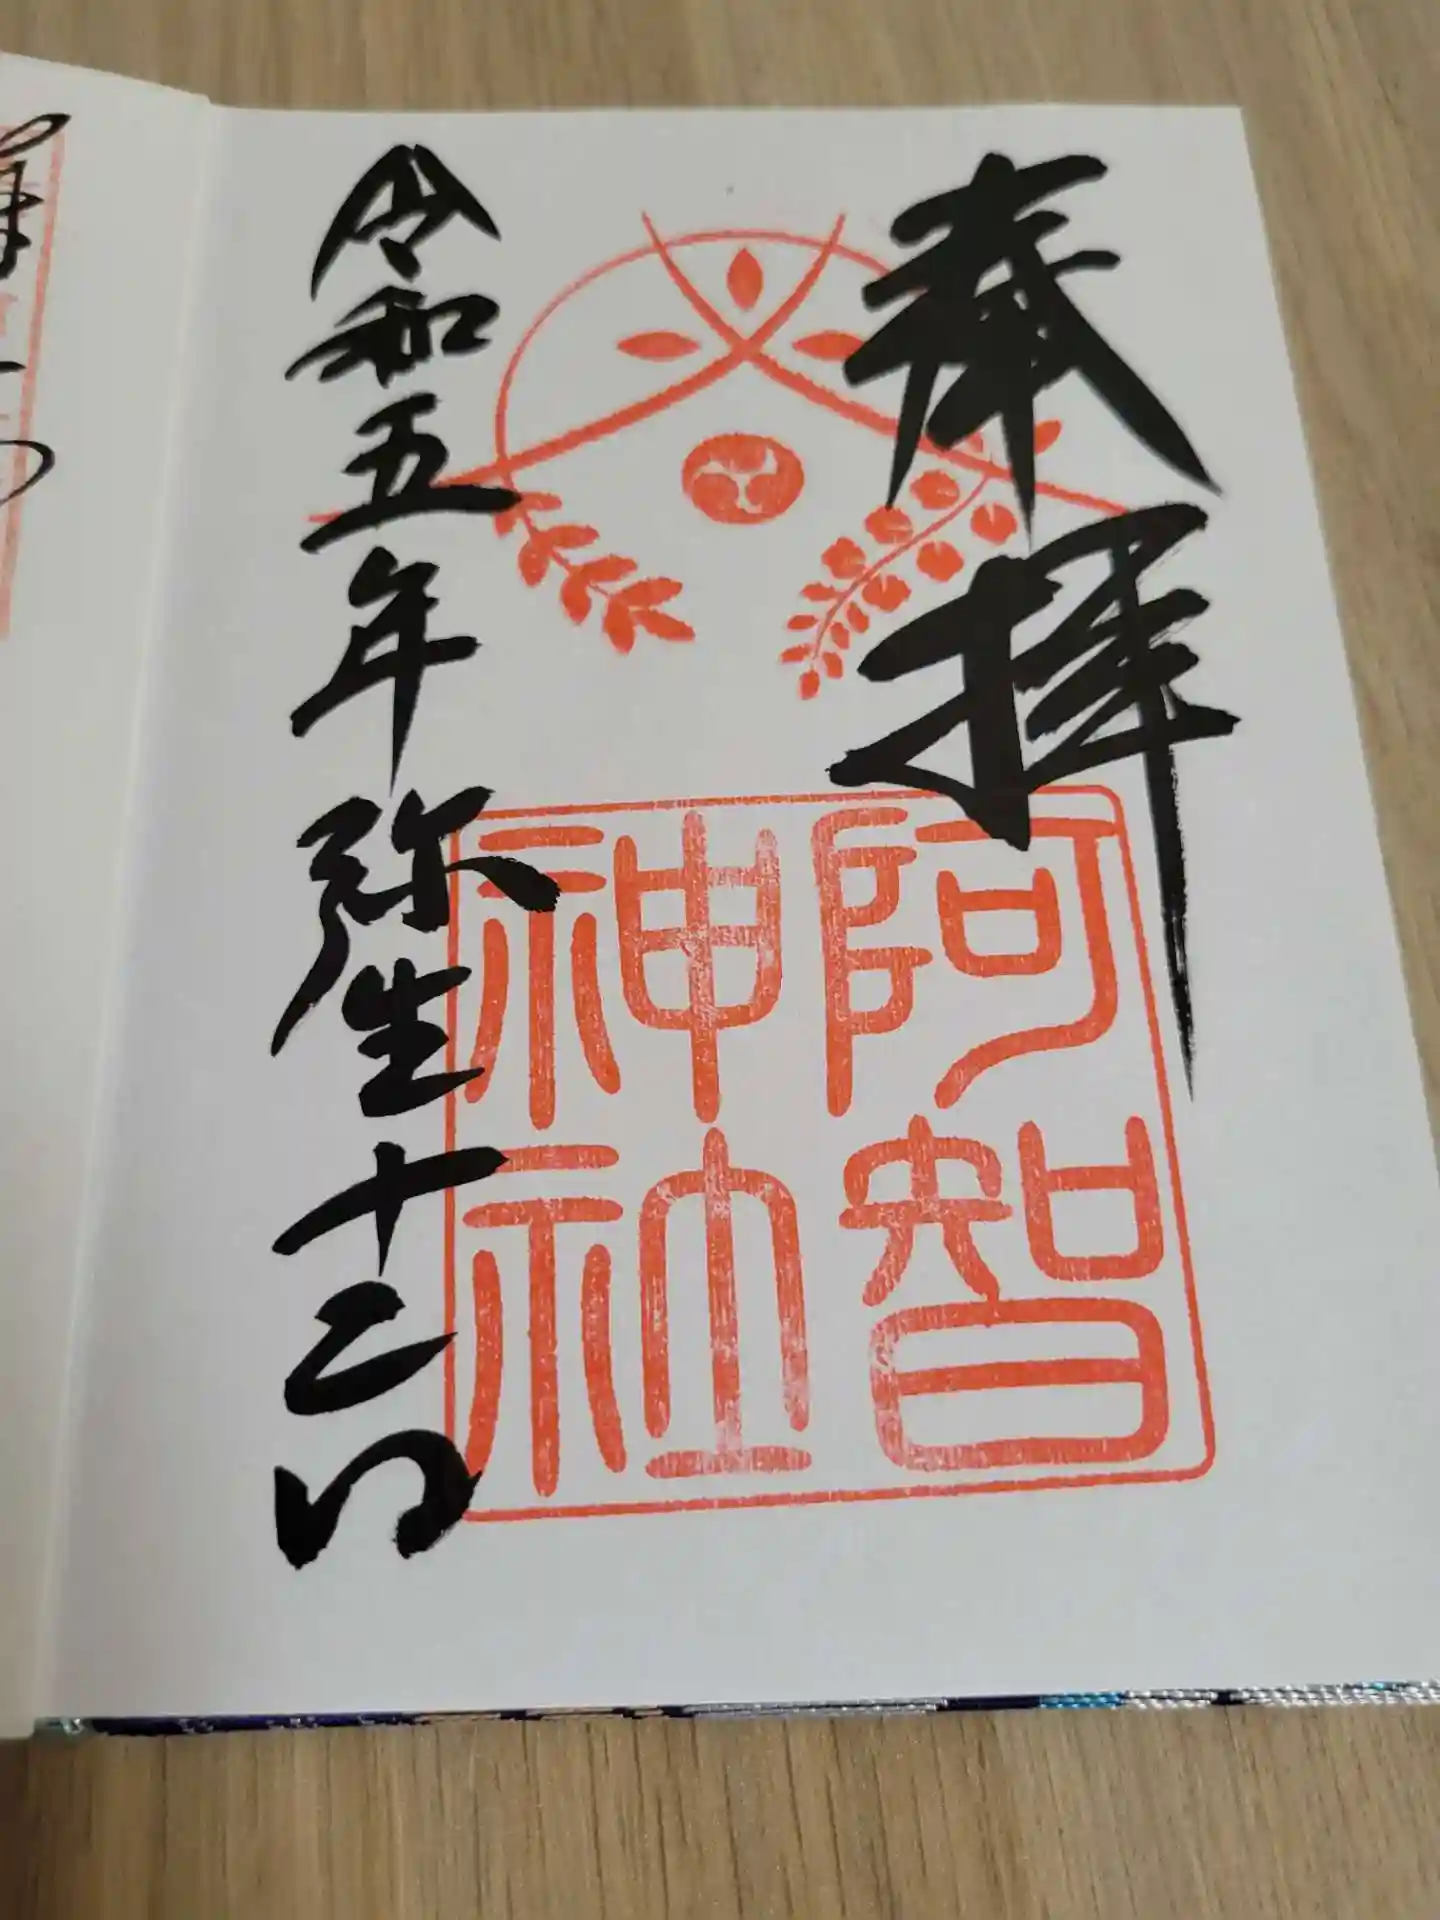 奉拝
阿智
神社
令和五年弥生十二日